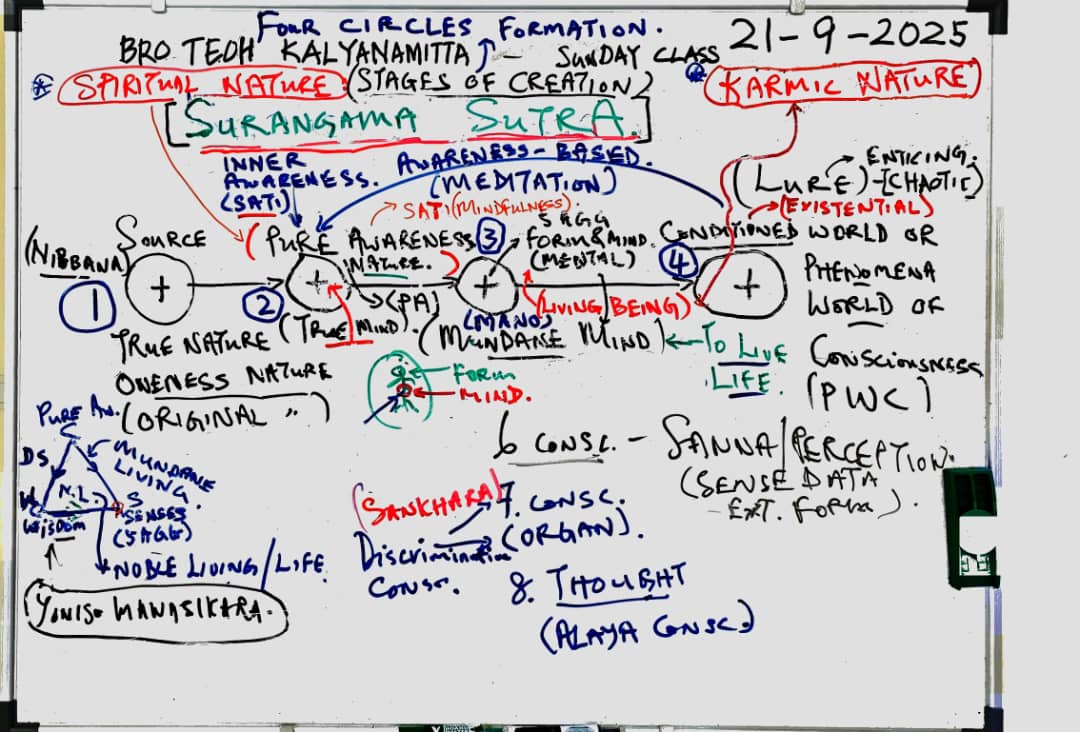 FOUR CIRCLES FORMATION.
BRO TEOH KALYANAMITTA - SUNDAY CLASS 21-9-2025
* SPIRITUAL NATURE (STAGES OF CREATION)
* KARMIC NATURE
[SURANGAMA SUTRA.]
INNER AWARENESS. (SATI)
AWARENESS-BASED.
(MEDITATION)
→ SATI (MINDFULNESS).
(LURE)-[CHAOTIC]
→ ENTICING.
→ (EXISTENTIAL)
(NIBBANA)
SOURCE
(PURE AWARENESS NATURE.)
→ (PA)
5 AGG
FORM & MIND.
(MENTAL)
CONDITIONED WORLD OR
PHENOMENA
WORLD OF
CONSCIOUSNESS
(PWC)
1
+
2
+
3
+
4
+
TRUE NATURE
(TRUE MIND).
(MANO)
(LIVING BEING)
(MUNDANE MIND) ← TO LIVE
LIFE.
ONENESS NATURE
(ORIGINAL ")
FORM
MIND.
PURE AW.
DS
MUNDANE
LIVING.
N.L.
W
WISDOM
S
SENSES
(5 AGG)
NOBLE LIVING/LIFE
YONISO MANASIKARA.
6 CONSC. - SANNA/PERCEPTION.
(SENSE DATA
- EXT. FORM).
(SANKHARA)
7. CONSC.
(ORGAN).
Discriminative
Consc.
8. THOUGHT
(ALAYA CONSC.)